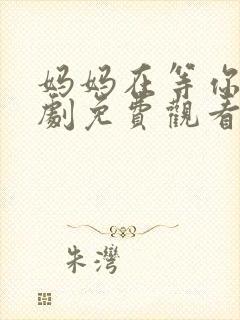 妈妈在等你
劇免費觀看
朱灣